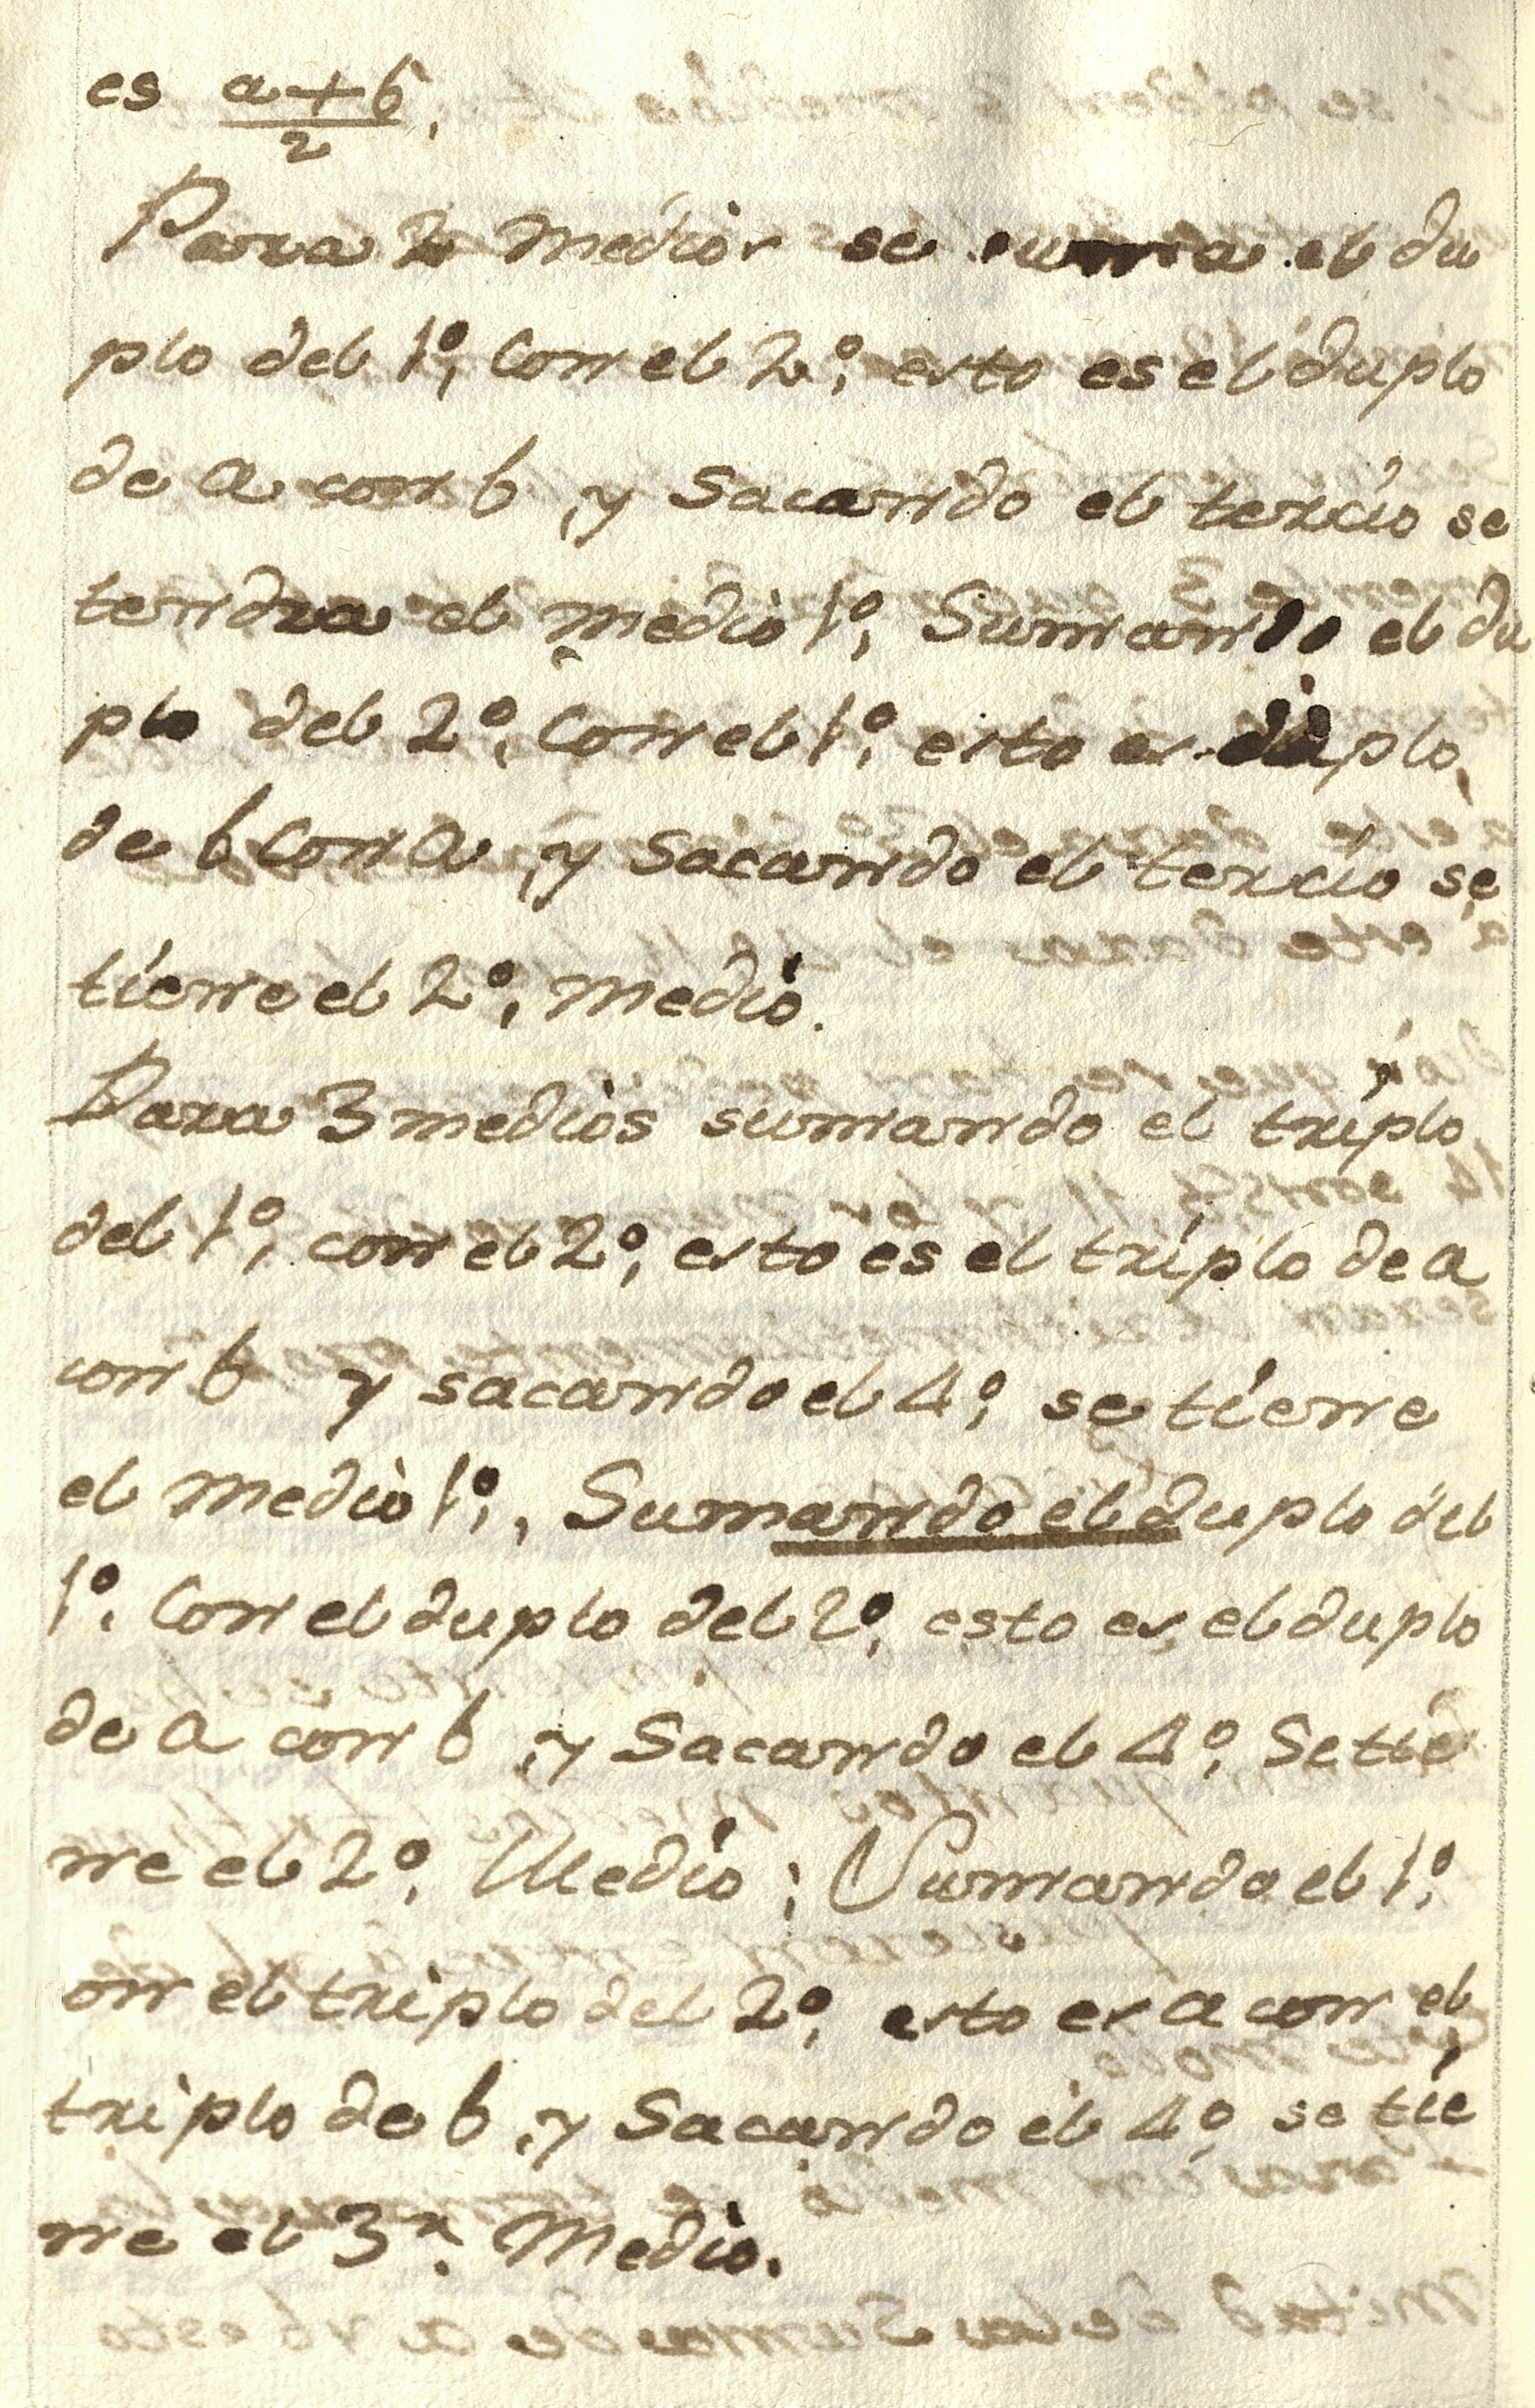 es a+b/2.
Para 2 medios se suma el du
plo del 1º, con el 2º, esto es el duplo
de a con b, y sacando el tercio se
tendra el medio 1º, Sumando el du
plo del 2º, con el 1º, esto es duplo,
de b con a, y sacando el tercio se
tiene el 2º, medio.
Para 3 medios sumando el triplo
del 1º, con el 2º, esto es el triplo de a
con b y sacando el 4º, se tiene
el medio 1º, , Sumando el duplo del
1º, con el duplo del 2º, esto es, el duplo
de a con b, y Sacando el 4º, Se tie
ne el 2º, Medio; Sumando el 1º,
on el triplo del 2º, esto es a con el
triplo de b, y Sacando el 4º, se tie
ne el 3r. Medio.